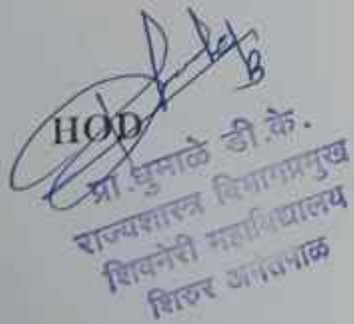 HOD
प्रा.धुमाळे डी.के.
राज्यशास्त्र विभागप्रमुख
शिवनेरी महाविद्यालय
शिरुर अनंतपाळ